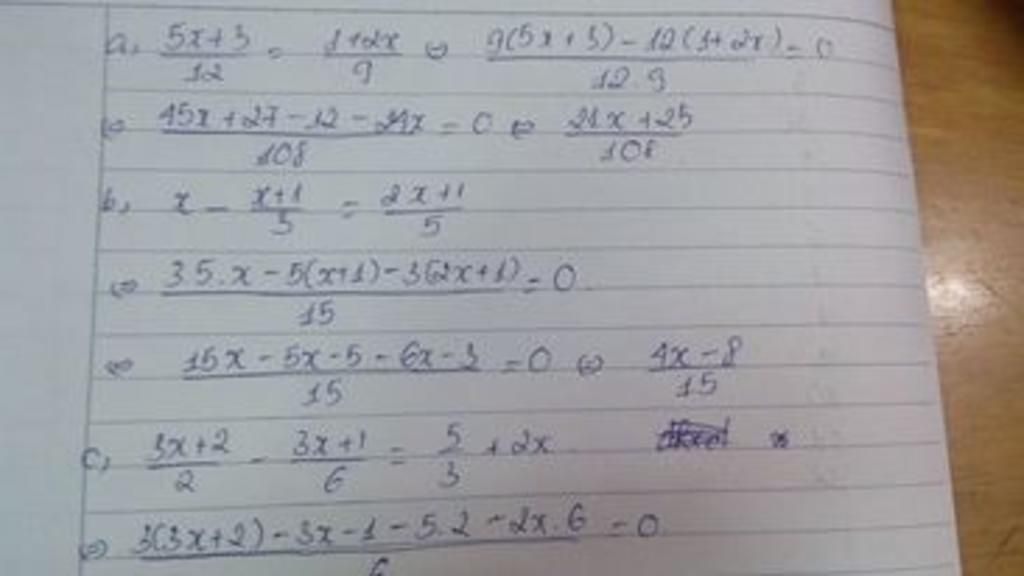 a, (5x+3)/12 = (1+2x)/9 ⇔ (9(5x+3) - 12(1+2x))/(12.9) = 0
⇔ (45x+27-12-24x)/108 = 0 ⇔ (21x+25)/108
b, x - (x+1)/3 = (2x+1)/5
⇔ (3.5.x - 5(x+1) - 3(2x+1))/15 = 0
⇔ (15x-5x-5-6x-3)/15 = 0 ⇔ (4x-8)/15
c, (3x+2)/2 - (3x+1)/6 = 5/3 + 2x
⇔ (3(3x+2) - 3x - 1 - 5.2 - 2x.6)/6 = 0